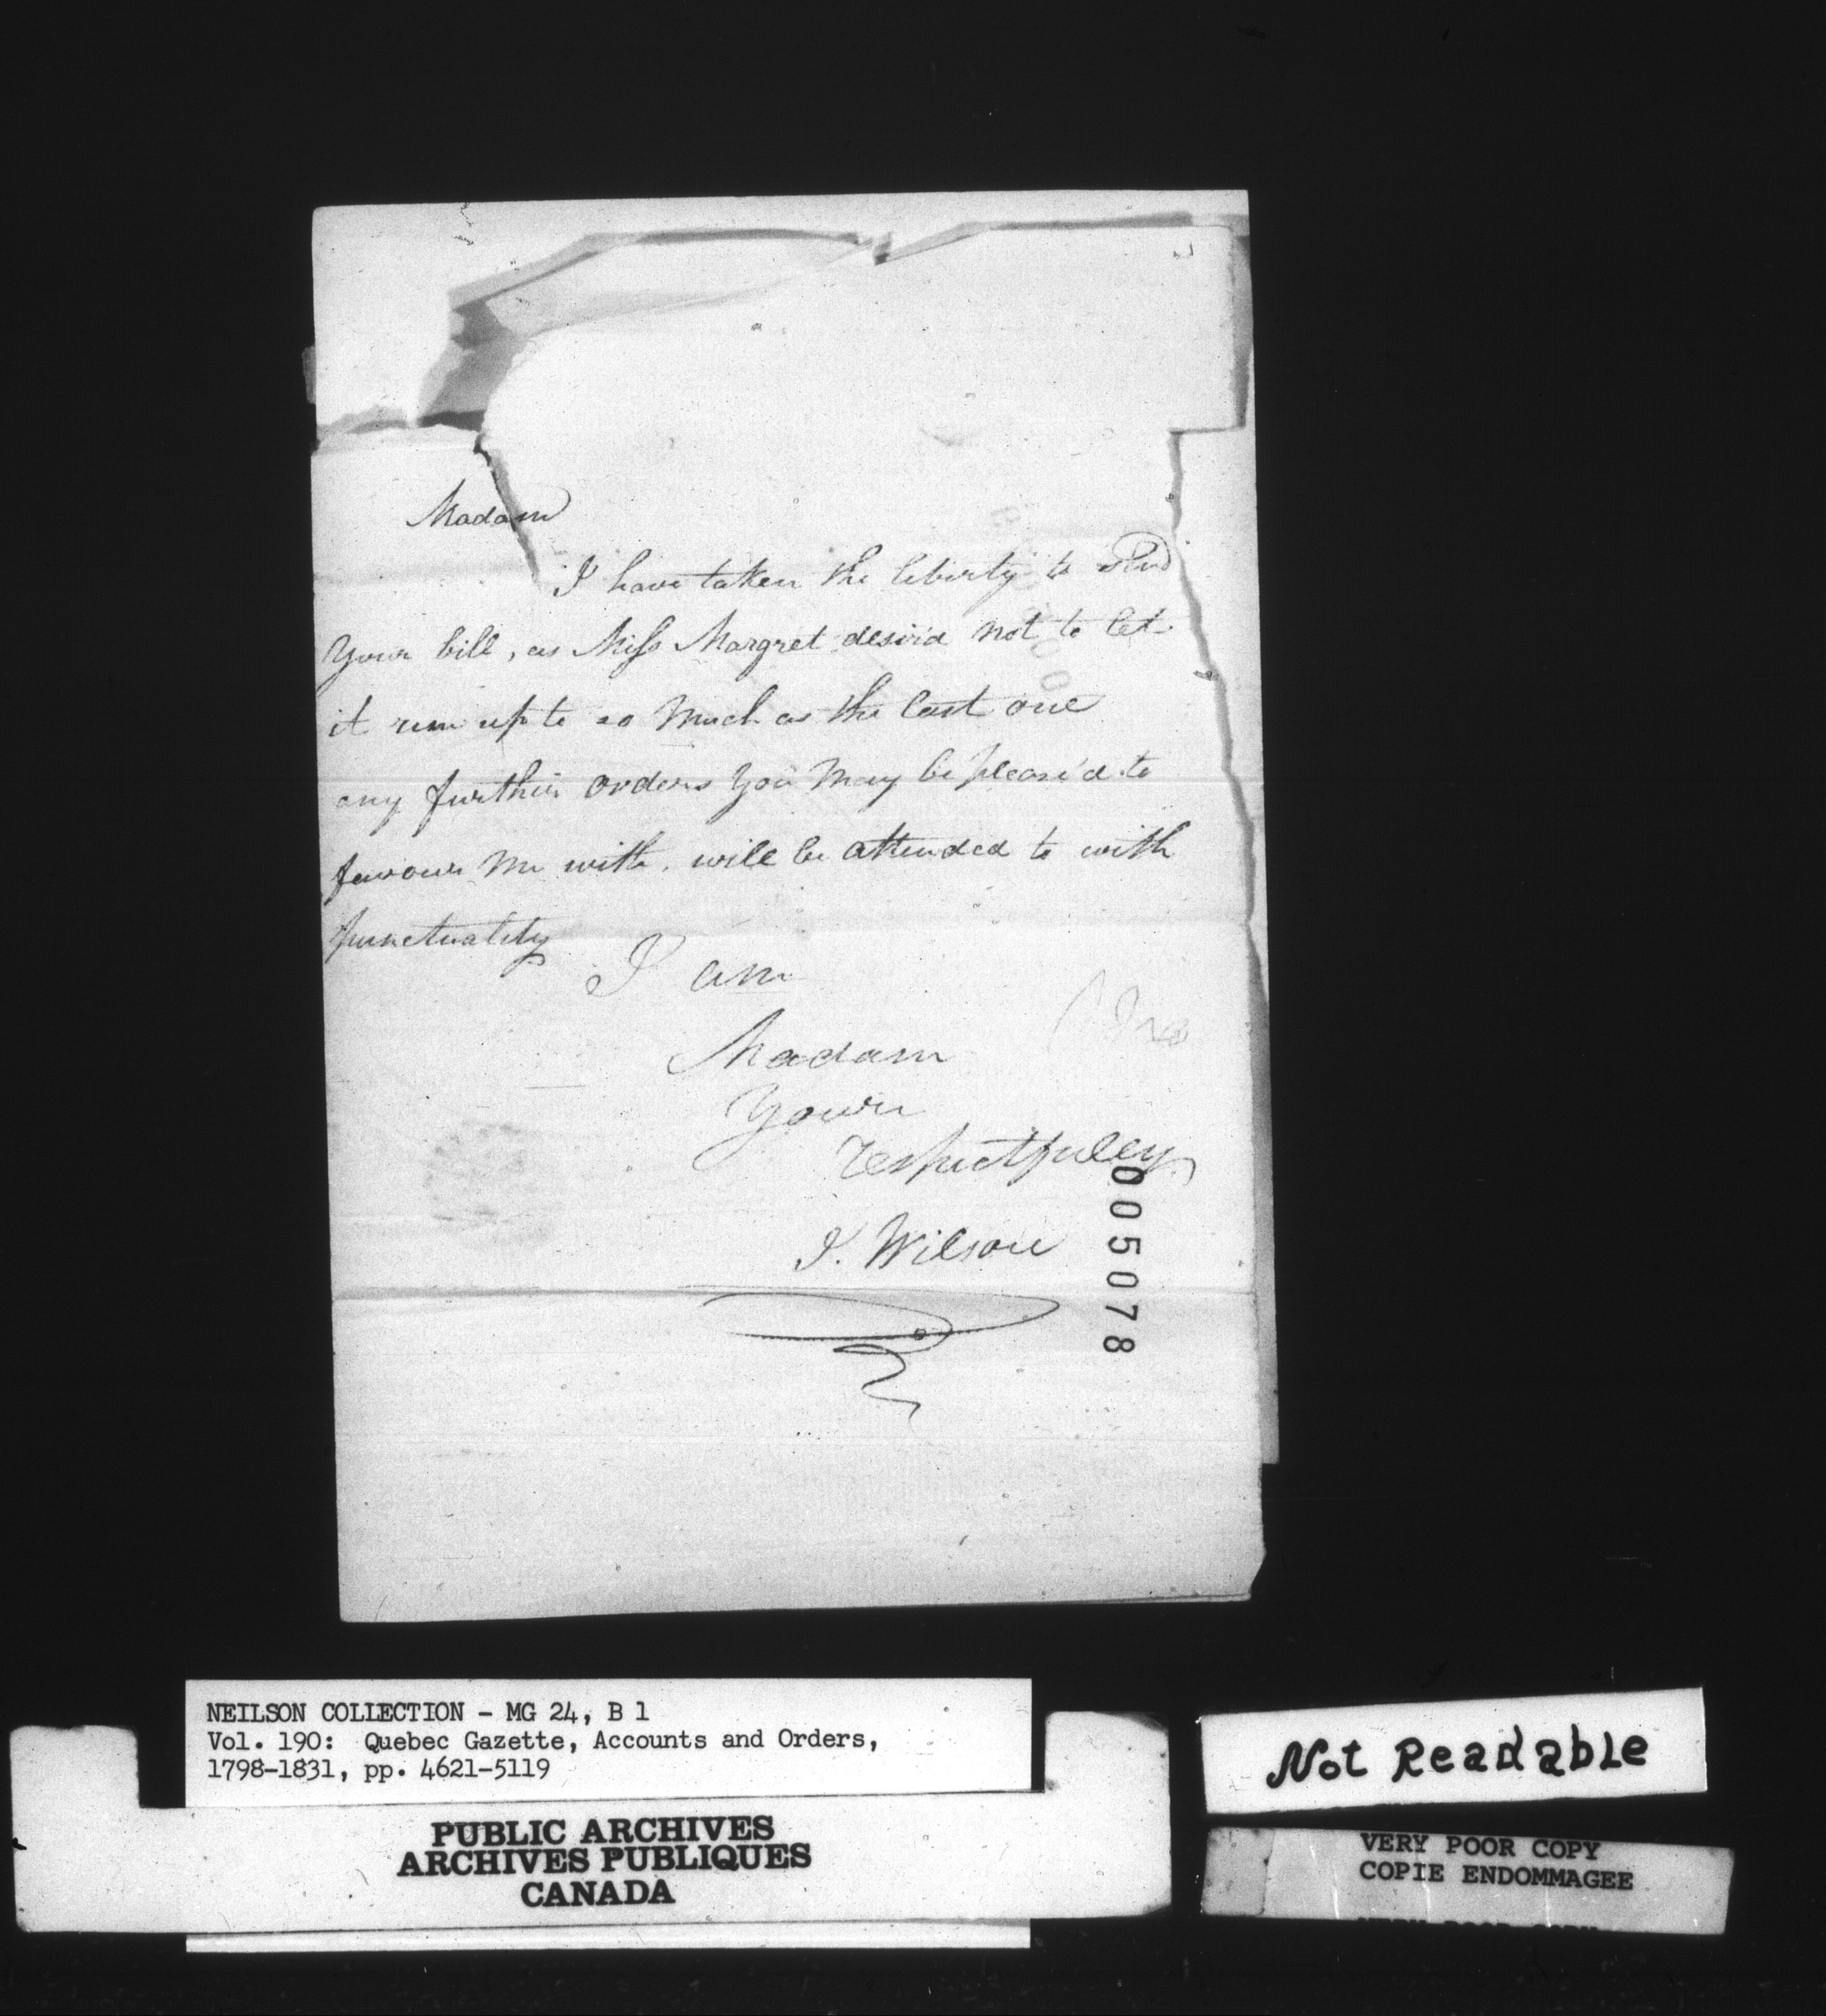 Madam
I have taken the liberty to send
Your bill, as Miss Margret desir'd not to let
it run up to so Much as the last one
any further orders You May be pleas'd to
favour Me with. will be attended to with
punctuality
I am
Madam
Your
respectfuley
J. Wilson
005078
NEILSON COLLECTION - MG 24, B 1
Vol. 190: Quebec Gazette, Accounts and Orders,
1798-1831, pp. 4621-5119
PUBLIC ARCHIVES
ARCHIVES PUBLIQUES
CANADA
Not Readable
VERY POOR COPY
COPIE ENDOMMAGEE
VERY POOR COPY